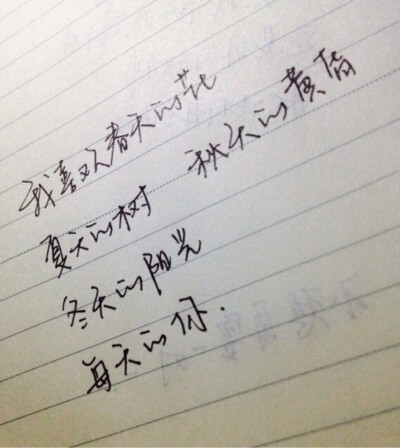 我喜欢春天的花
夏天的树 秋天的黄昏
冬天的阳光
每天的你.